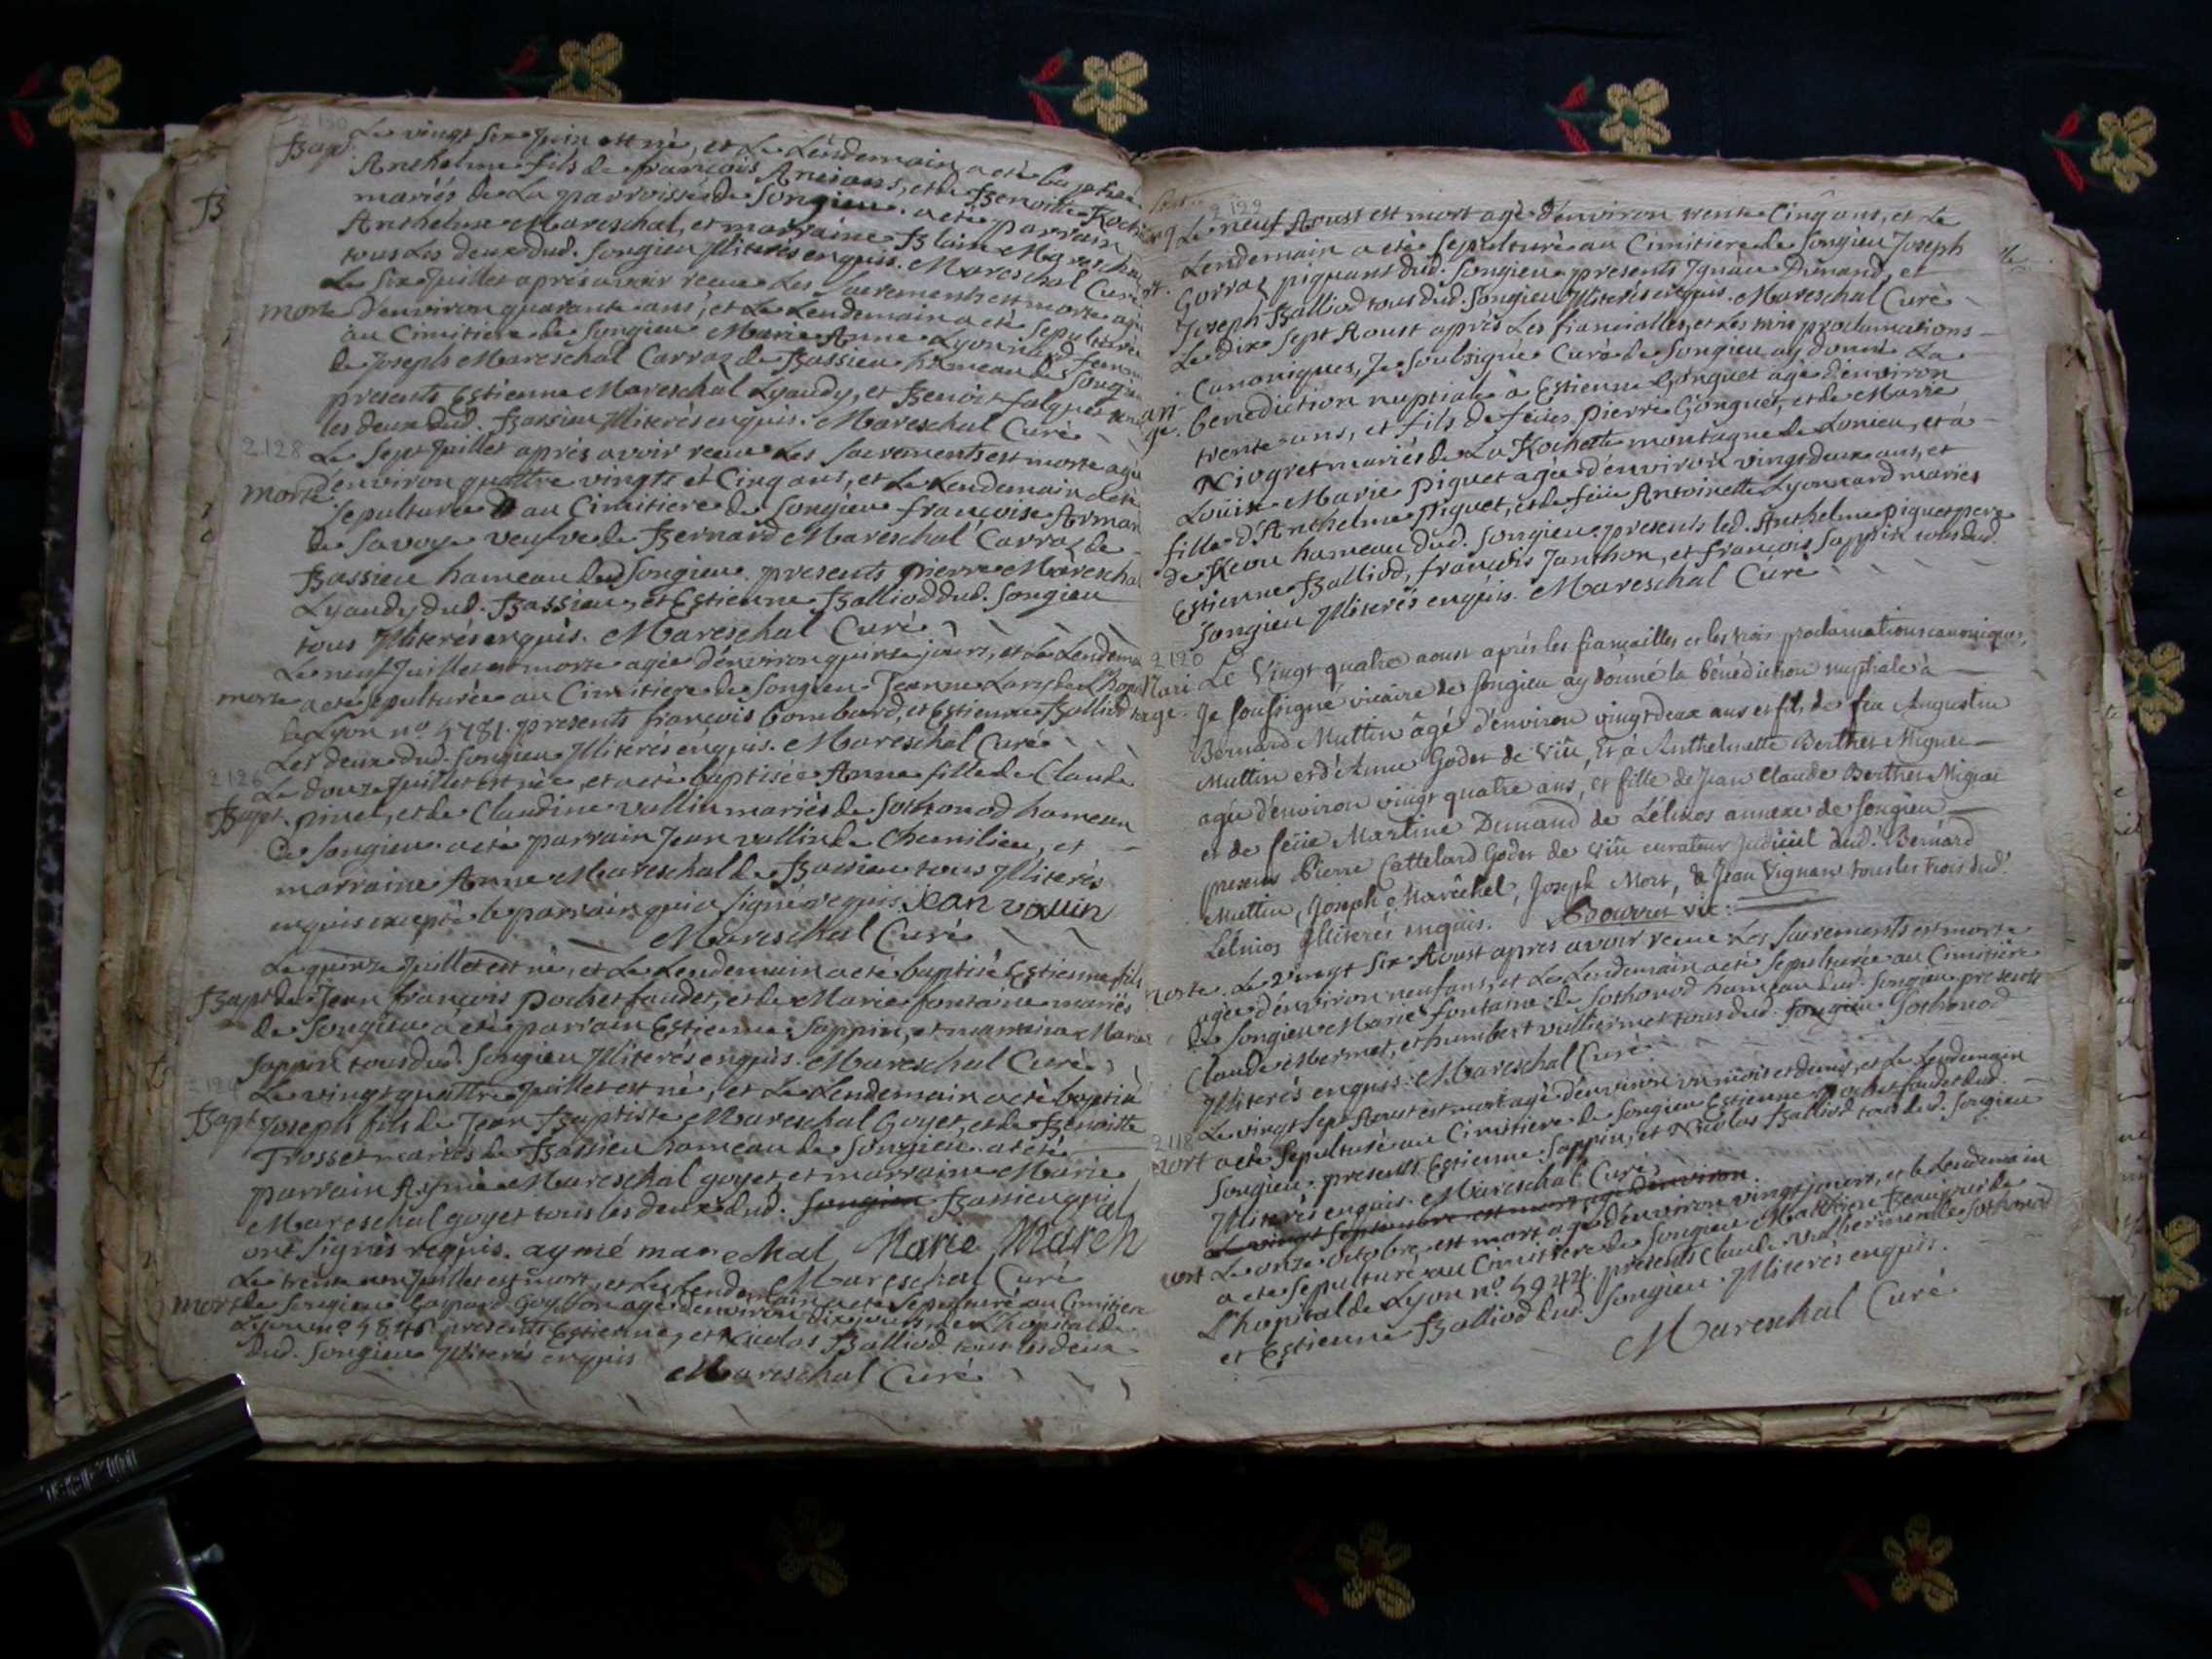 2130
Bapt. Le vingt six Juin est né, et Le Lendemain a eté baptisé
Anthelme fils de françois Ancians, et de Benoite
mariés de La parroisse de Songieu. a eté parrain
Anthelme Mareschal, et marraine Blaine Mareschal
tous Les deux dud. Songieu Illiterés enquis. Mareschal Curé
Le six Juillet aprés avoir receu Les Sacrements est morte agée
morte d'environ quarante ans, et Le Lendemain a eté sepulturée
au Cimitiere de Songieu Marie Anne Lyonnard femme
de Joseph Mareschal Carraz de Bassieu hameau de Songieu
presents Estienne Mareschal Lyaudy, et Benoit
les deux dud. Bassieu Illiterés enquis. Mareschal Curé
2128 Le Sept Juillet aprés avoir receu Les Sacrements est morte agée
morte d'environ quattre vingts et Cinq ans, et Le Lendemain a eté
Sepulturée au Cimitiere de Songieu françoise
de Savoye veufve de Bernard Mareschal Carraz de
Bassieu hameau dud Songieu. presents pierre Mareschal
Lyaudy dud. Bassieu, et Estienne Balliod dud. Songieu
tous Illiterés enquis. Mareschal Curé
Le neuf Juillet est morte agée d'environ quinze jours, et Le Lendemain
morte a eté sepulturée au Cimitiere de Songieu Jeanne de L'hopital
de Lyon no 5781. presents françois Gombard, et Estienne Balliod
Les deux dud. Songieu Illiterés enquis. Mareschal Curé
2126 Le douze Juillet est née, et a eté baptisée Anne fille de Claude
Bapt. pinet, et de Claudine vallin mariés de Sothonod hameau
de Songieu. a eté parrain Jean vallin de Chemilieu, et
marraine Anne Mareschal de Bassieu tous Illiterés
enquis excepté le parrain qui a signé requis. jean vallin
Mareschal Curé
Le quinze Juillet est né, et Le Lendemain a eté baptisé Estienne fils
Bapt de Jean françois pochet faudet, et de Marie fontaine mariés
de Songieu. a eté parrain Estienne Sappin, et marraine Marie
Sappin tous dud. Songieu Illiterés enquis. Mareschal Curé
Le vingt quattre Juillet est né, et Le Lendemain a eté baptisé
Bapt Joseph fils de Jean Baptiste Mareschal Goyet, et de Benoitte
Trosset mariés de Bassieu hameau de Songieu. a eté
parrain Aymé Mareschal goyet, et marraine Marie
Mareschal goyet tous les deux dud. Songieu Bassieu qui
ont signés requis. aymé marechal Marie Marechal
Mareschal Curé
Le trente un Juillet est mort, et Le Lendemain a eté Sepulturé au Cimitiere
mort de Songieu Gaspard agé d'environ dix jours, de L'hopital de
Lyon no 5848 presents Estienne, et Nicolas Balliod tous les deux
dud. Songieu Illiterés enquis
Mareschal Curé
2129
Le neuf Aoust est mort agé d'environ trente Cinq ans, et Le
Lendemain a eté Sepulturé au Cimitiere de Songieu Joseph
Gorraz piquant dud. Songieu. presents Ignace Dunand, et
Joseph Balliod tous dud. Songieu Illiterés enquis. Mareschal Curé
Le dix Sept Aoust aprés Les fiancialles, et Les trois proclamations
Canoniques, Je Soubsigné Curé de Songieu ay donné La
benediction nuptiale à Estienne Gonguet agé d'environ
trente ans, et fils de feus pierre Gonguet, et de Marie
Niogret mariés de La Rochette montagne de Lonieu, et à
Louise Marie piguet agée d'environ vingt deux ans, et
fille d'Anthelme piguet, et de feue Antoinette Lyonnard mariés
de hameau dud. Songieu. presents led. Anthelme piguet pere
Estienne Balliod, françois Janthon, et françois Sappin tous dud.
Songieu Illiterés enquis. Mareschal Curé
2120 Mari Le Vingt quatre aoust aprés les fiançailles et les trois proclamations canoniques,
age. Je soussigné vicaire de Songieu ay donné la bénédiction nuptiale à
Bernard Muttin âgé d'environ vingt deux ans et fils de feu Augustin
Muttin et d'Anne Godet de Viû, Et à Anthelmette Berthet Mignai
agée d'environ vingt quatre ans, et fille de Jean Claude Berthet Mignai
et de feüe Martine Dunand de Lélinos annexe de Songieu
presents Pierre Cattelard Godet de Viû curateur Judiciel dud. Bernard
Muttin, Joseph Maréchel, Joseph Mort, & Jean Vignan tous les trois dud.
Lélinos Illiterés enquis. Bourret vic:
morte. Le vingt Six Aoust apres avoir receu Les Sacrements est morte
agée d'environ neuf ans, et Le Lendemain a eté Sepulturée au Cimitiere
de Songieu Marie fontaine de Sothonod hameau dud. Songieu presents
Claude Mermet, et humbert vulliermet tous dud. Songieu Sothonod
Illiterés enquis. Mareschal Curé
Le vingt Sept Aoust est mort agé d'environ un mois et demis, et Le Lendemain
2118 mort a eté Sepulturé au Cimitiere de Songieu Estienne pochet faudet dud.
Songieu. presents Estienne Sappin, et Nicolas Balliod tous dud. Songieu
Illiterés enquis. Mareschal Curé
Le vingt Septembre est mort agé d'environ
mort Le onze octobre est mort agé d'environ vingt jours, et le Lendemain
a eté Sepulturé au Cimitiere de Songieu de
L'hopital de Lyon no. 5944. presents Claude de Sothonod
et Estienne Balliod dud. Songieu. Illiterés enquis.
Mareschal Curé